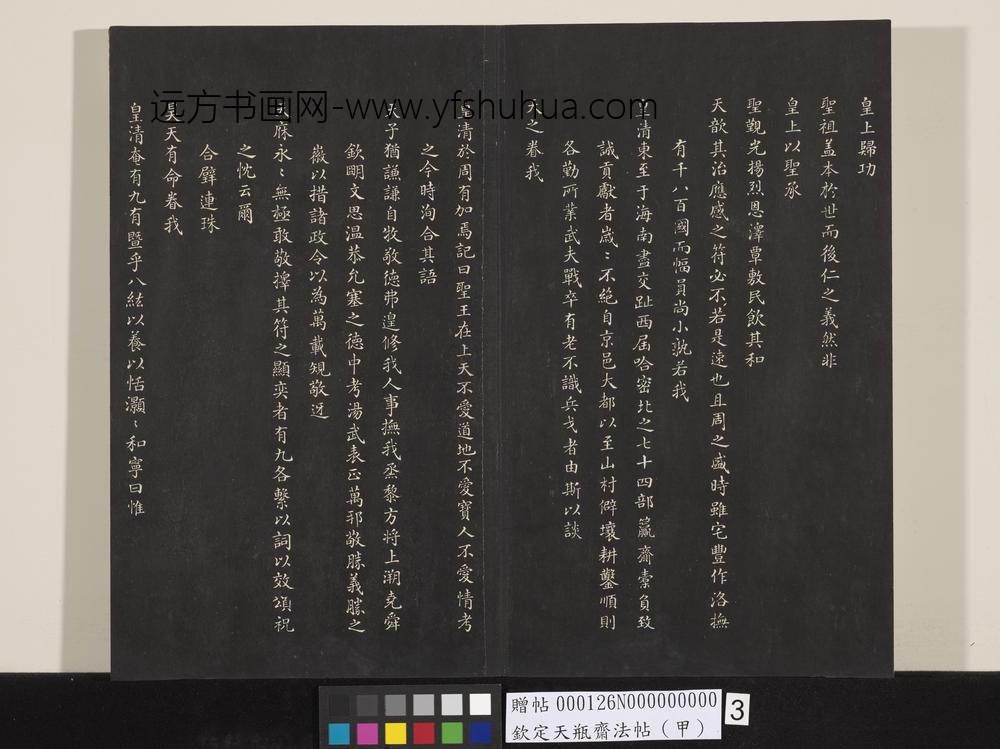 皇上歸功
聖祖蓋本於世而後仁之義然非
皇上以聖承
聖觀光揚烈恩澤覃敷民飲其和
天歆其治應感之符必不若是速也且周之盛時雖宅豐作洛撫
有千八百國而幅員尚小孰若我
皇清東至于海南盡交趾西屆哈密北之七十四部籯齎橐負致
誠貢獻者歲〻不絕自京邑大都以至山村僻壤耕鑿順則
各勤所業武夫戰卒有老不識兵戈者由斯以談
天之眷我
皇清於周有加焉記曰聖王在上天不愛道地不愛寶人不愛情考
之今時洵合其語
天子猶謙謙自牧敬德弗遑修我人事撫我烝黎方将上溯堯舜
欽明文思温恭允塞之德中考湯武表正萬邦敬勝義勝之
徽以措諸政令以為萬載規敬迓
天庥永〻無極敢敬擇其符之顯奕者有九各繫以詞以效頌祝
之忱云爾
合璧連珠
昊天有命眷我
皇清奄有九有暨乎八紘以養以恬灝〻和寧曰惟
远方书画网-www.yfshuhua.com
贈帖 000126N000000000
欽定天瓶齋法帖（甲）
3